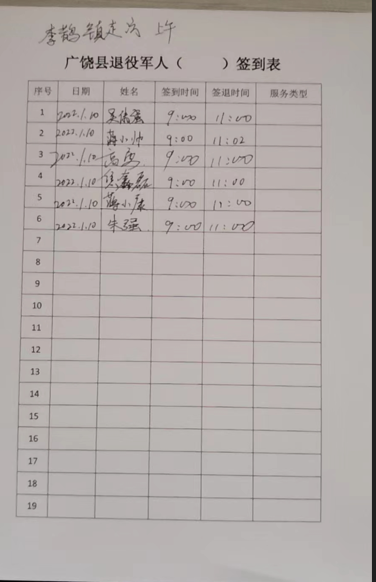 李鹊镇走访 上午
广饶县退役军人（ ）签到表
序号 日期 姓名 签到时间 签退时间 服务类型
1 2022.1.10 9:00 11:00
2 2022.1.10 蒋小帅 9:00 11:02
3 2022.1.10 9:00 11:00
4 2022.1.10 9:00 11:00
5 2022.1.10 蒋小康 9:00 11:00
6 2022.1.10 朱强 9:00 11:00
7
8
9
10
11
12
13
14
15
16
17
18
19